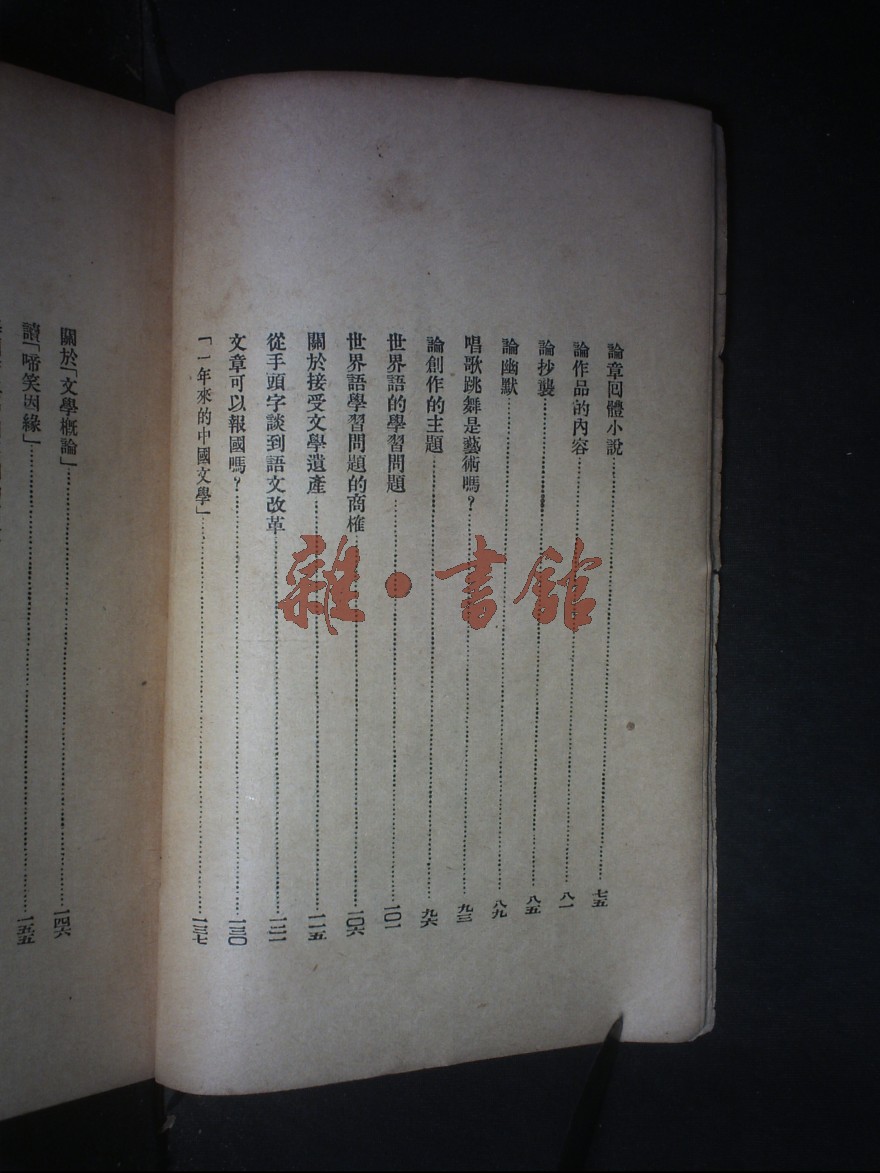 論章回體小說……七五
論作品的內容……八一
論抄襲……八五
論幽默……八九
唱歌跳舞是藝術嗎？……九三
論創作的主題……九六
世界語的學習問題……一〇一
世界語學習問題的商榷……一〇六
關於接受文學遺產……一一五
從手頭字談到語文改革……一二一
文章可以報國嗎？……一三〇
「一年來的中國文學」……一三七
關於「文學概論」……一四六
讀「啼笑因緣」……一五五
雜·書館